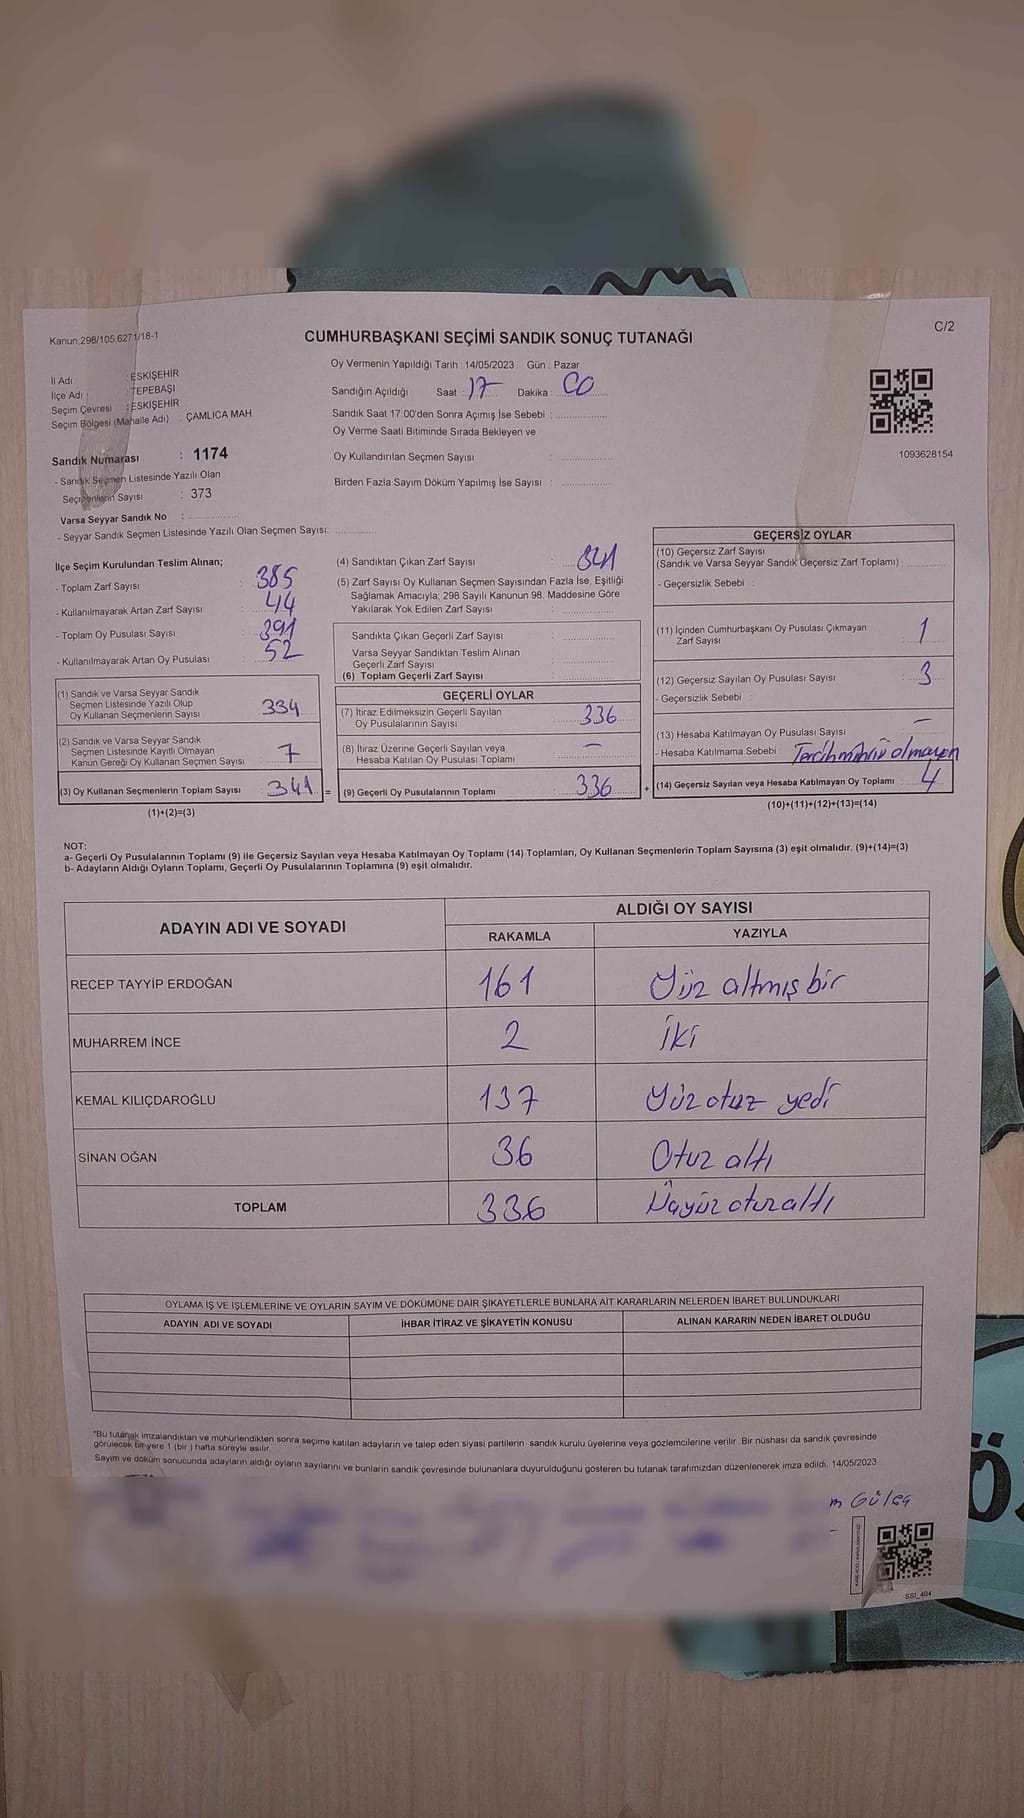 Kanun:298/105,6271/18-1
C/2
CUMHURBAŞKANI SEÇİMİ SANDIK SONUÇ TUTANAĞI
Oy Vermenin Yapıldığı Tarih : 14/05/2023 Gün : Pazar
İl Adı : ESKİŞEHİR
İlçe Adı : TEPEBAŞI
Seçim Çevresi : ESKİŞEHİR
Seçim Bölgesi (Mahalle Adı) ÇAMLICA MAH.
Sandığın Açıldığı Saat : 17 Dakika : 00
Sandık Saat 17:00'den Sonra Açımış İse Sebebi :
Oy Verme Saati Bitiminde Sırada Bekleyen ve
Oy Kullandırılan Seçmen Sayısı :
Birden Fazla Sayım Döküm Yapılmış İse Sayısı :
1093628154
Sandık Numarası : 1174
- Sandık Seçmen Listesinde Yazılı Olan
Seçmenlerin Sayısı : 373
Varsa Seyyar Sandık No :
- Seyyar Sandık Seçmen Listesinde Yazılı Olan Seçmen Sayısı:
İlçe Seçim Kurulundan Teslim Alınan;
- Toplam Zarf Sayısı : 385
- Kullanılmayarak Artan Zarf Sayısı : 44
- Toplam Oy Pusulası Sayısı : 391
- Kullanılmayarak Artan Oy Pusulası : 52
(1) Sandık ve Varsa Seyyar Sandık
Seçmen Listesinde Yazılı Olup
Oy Kullanan Seçmenlerin Sayısı : 334
(2) Sandık ve Varsa Seyyar Sandık
Seçmen Listesinde Kayıtlı Olmayan
Kanun Gereği Oy Kullanan Seçmen Sayısı : 7
(3) Oy Kullanan Seçmenlerin Toplam Sayısı : 341 =
(1)+(2)=(3)
(4) Sandıktan Çıkan Zarf Sayısı : 341
(5) Zarf Sayısı Oy Kullanan Seçmen Sayısından Fazla İse, Eşitliği
Sağlamak Amacıyla; 298 Sayılı Kanunun 98. Maddesine Göre
Yakılarak Yok Edilen Zarf Sayısı :
Sandıkta Çıkan Geçerli Zarf Sayısı :
Varsa Seyyar Sandıktan Teslim Alınan
Geçerli Zarf Sayısı :
(6) Toplam Geçerli Zarf Sayısı :
GEÇERLİ OYLAR
(7) İtiraz Edilmeksizin Geçerli Sayılan
Oy Pusulalarının Sayısı : 336
(8) İtiraz Üzerine Geçerli Sayılan veya
Hesaba Katılan Oy Pusulası Toplamı : —
(9) Geçerli Oy Pusulalarının Toplamı : 336 +
GEÇERSİZ OYLAR
(10) Geçersiz Zarf Sayısı
(Sandık ve Varsa Seyyar Sandık Geçersiz Zarf Toplamı) :
- Geçersizlik Sebebi :
(11) İçinden Cumhurbaşkanı Oy Pusulası Çıkmayan
Zarf Sayısı : 1
(12) Geçersiz Sayılan Oy Pusulası Sayısı : 3
- Geçersizlik Sebebi :
(13) Hesaba Katılmayan Oy Pusulası Sayısı : —
- Hesaba Katılmama Sebebi : Tercih mührü olmayan
(14) Geçersiz Sayılan veya Hesaba Katılmayan Oy Toplamı : 4
(10)+(11)+(12)+(13)=(14)
NOT:
a- Geçerli Oy Pusulalarının Toplamı (9) ile Geçersiz Sayılan veya Hesaba Katılmayan Oy Toplamı (14) Toplamları, Oy Kullanan Seçmenlerin Toplam Sayısına (3) eşit olmalıdır. (9)+(14)=(3)
b- Adayların Aldığı Oyların Toplamı, Geçerli Oy Pusulalarının Toplamına (9) eşit olmalıdır.
ADAYIN ADI VE SOYADI ALDIĞI OY SAYISI
RAKAMLA YAZIYLA
RECEP TAYYİP ERDOĞAN 161 Yüz altmış bir
MUHARREM İNCE 2 İki
KEMAL KILIÇDAROĞLU 137 Yüz otuz yedi
SİNAN OĞAN 36 Otuz altı
TOPLAM 336 Üçyüz otuz altı
OYLAMA İŞ VE İŞLEMLERİNE VE OYLARIN SAYIM VE DÖKÜMÜNE DAİR ŞİKAYETLERLE BUNLARA AİT KARARLARIN NELERDEN İBARET BULUNDUKLARI
ADAYIN ADI VE SOYADI İHBAR İTİRAZ VE ŞİKAYETİN KONUSU ALINAN KARARIN NEDEN İBARET OLDUĞU
*Bu tutanak imzalandıktan ve mühürlendikten sonra seçime katılan adayların ve talep eden siyasi partilerin sandık kurulu üyelerine veya gözlemcilerine verilir. Bir nüshası da sandık çevresinde
görülecek bir yere 1 (bir ) hafta süreyle asılır.
Sayım ve döküm sonucunda adayların aldığı oyların sayılarını ve bunların sandık çevresinde bulunanlara duyurulduğunu gösteren bu tutanak tarafımızdan düzenlenerek imza edildi. 14/05/2023
SSI_404